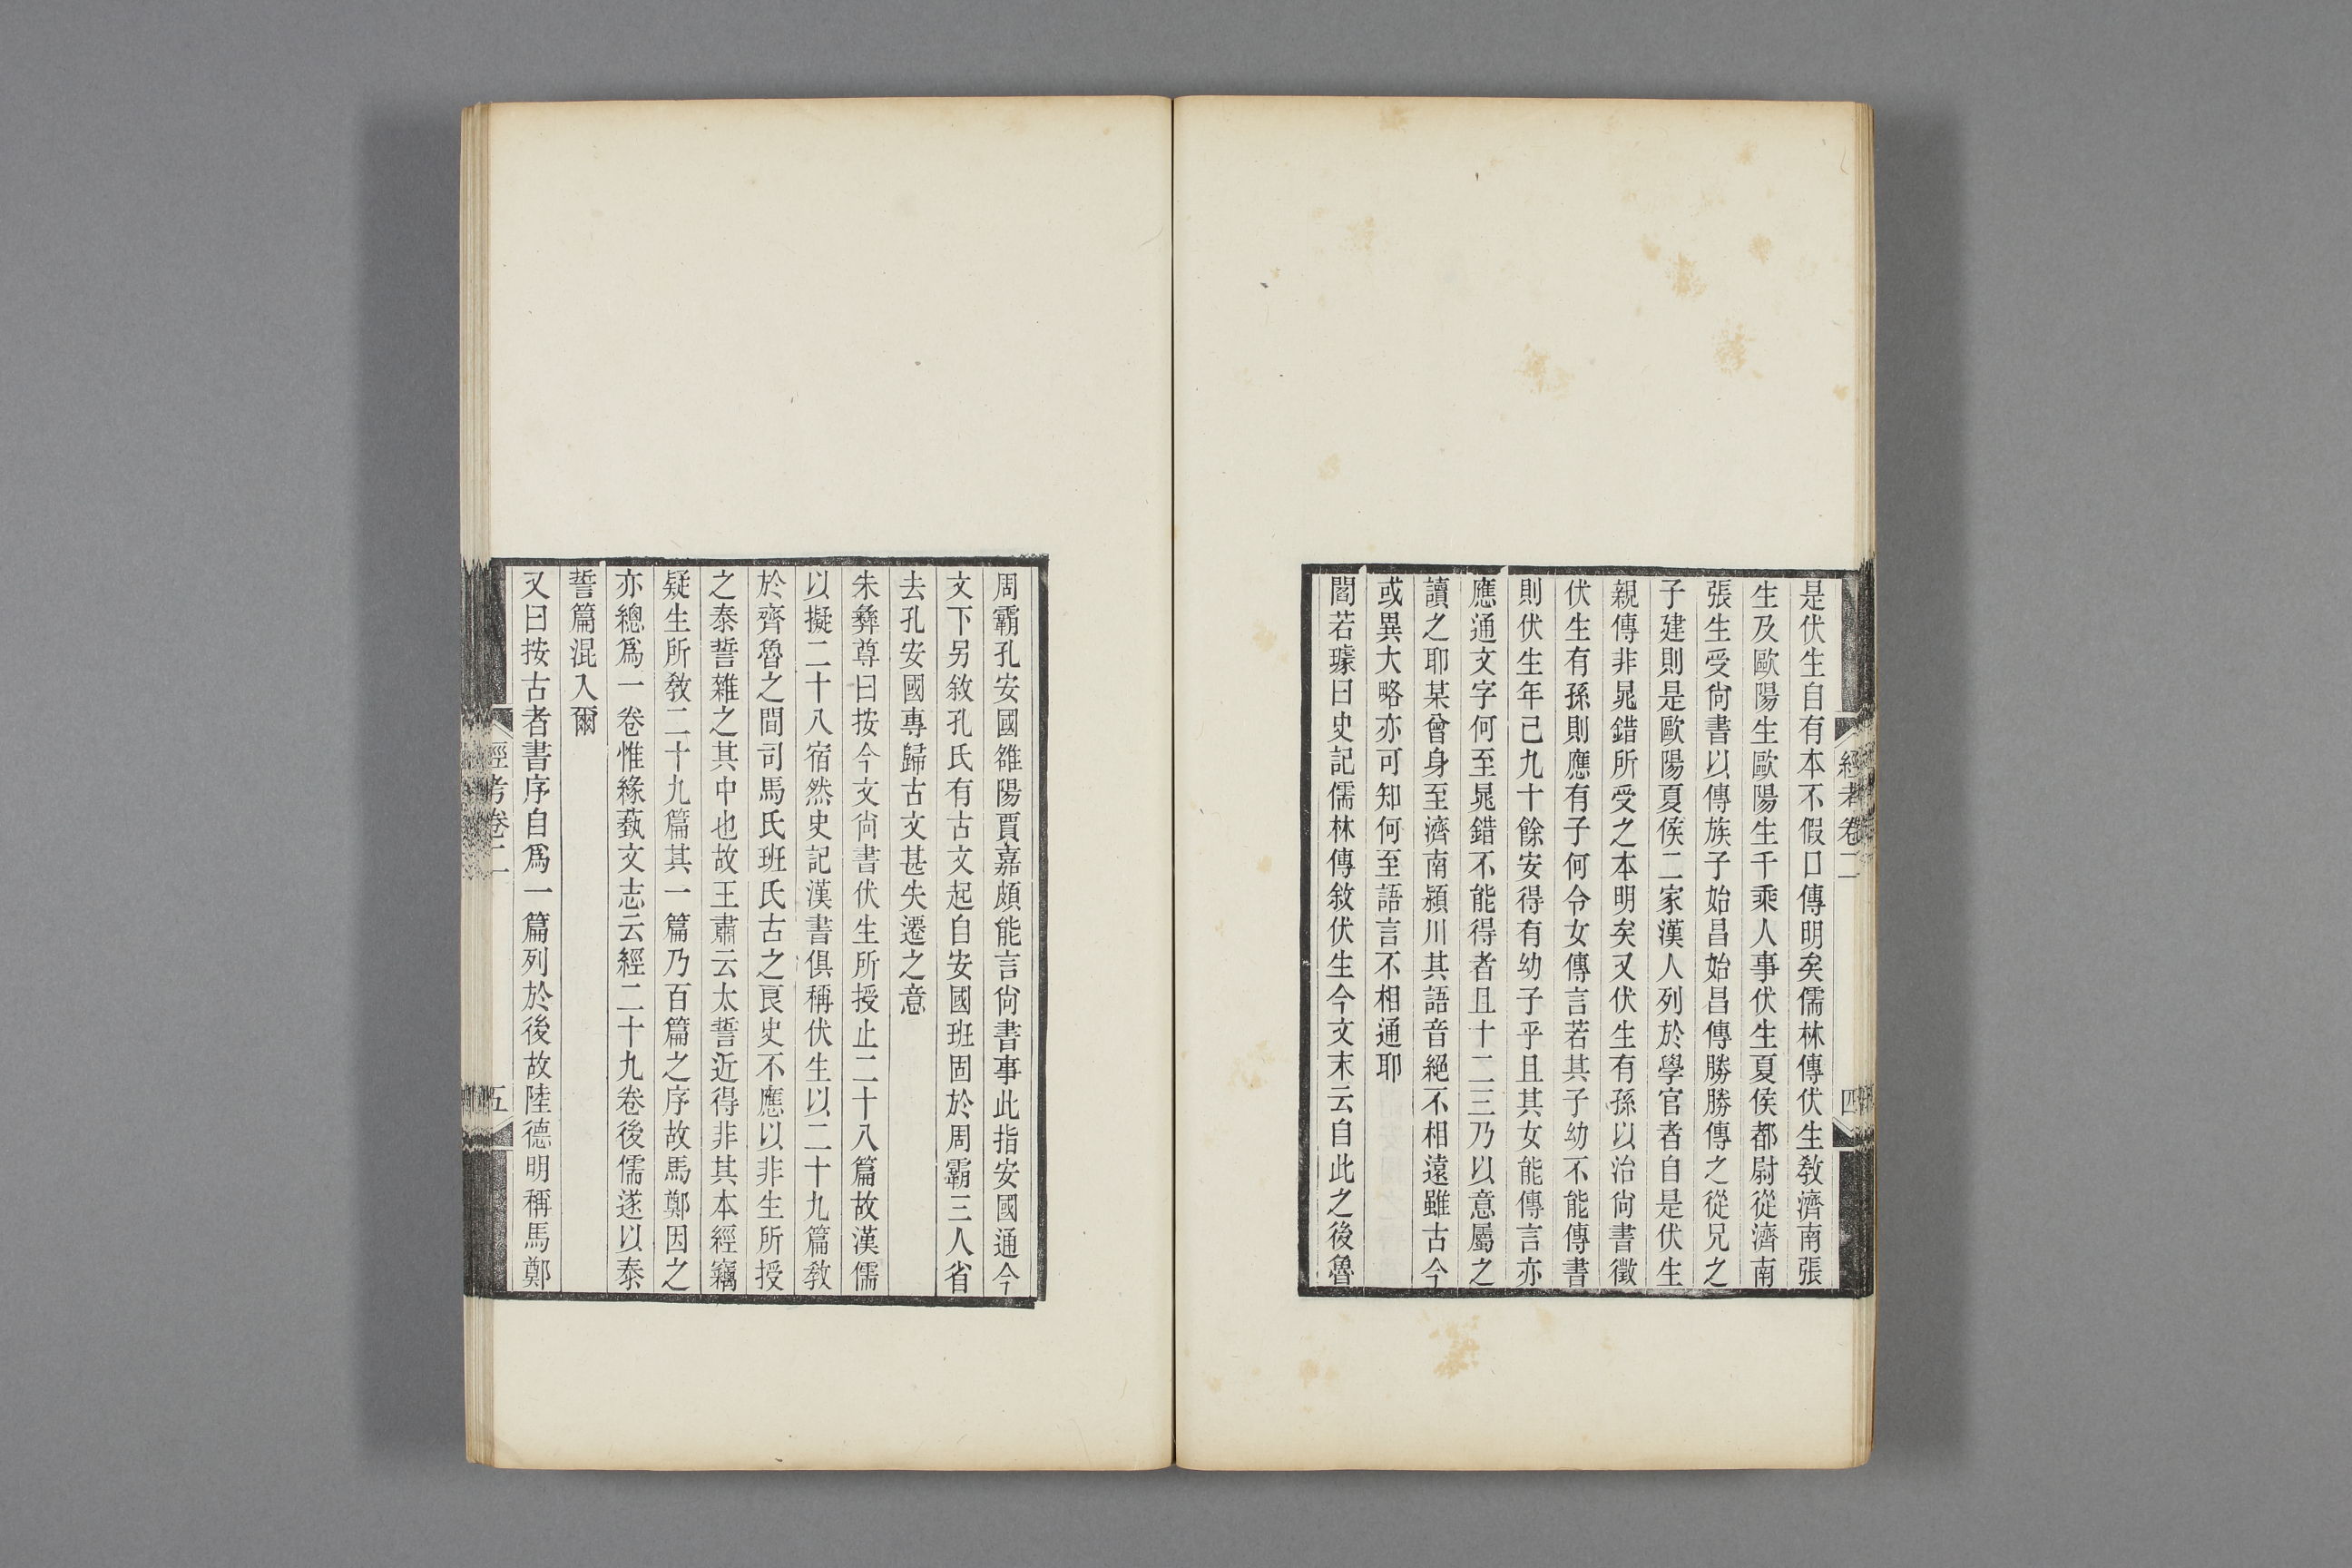 經考卷二
四
是伏生自有本不假口傳明矣儒林傳伏生教濟南張
生及歐陽生歐陽生千乘人事伏生夏侯都尉從濟南
張生受尙書以傳族子始昌始昌傳勝勝傳之從兄之
子建則是歐陽夏侯二家漢人列於學官者自是伏生
親傳非晁錯所受之本明矣又伏生有孫以治尙書徵
伏生有孫則應有子何令女傳言若其子幼不能傳書
則伏生年已九十餘安得有幼子乎且其女能傳言亦
應通文字何至晁錯不能得者且十二三乃以意屬之
讀之耶某曾身至濟南潁川其語音絕不相遠雖古今
或異大略亦可知何至語言不相通耶
閻若璩曰史記儒林傳敘伏生今文末云自此之後魯
周霸孔安國雒陽賈嘉頗能言尙書事此指安國通今
文下另敘孔氏有古文起自安國班固於周霸三人省
去孔安國專歸古文甚失遷之意
朱彝尊曰按今文尙書伏生所授止二十八篇故漢儒
以擬二十八宿然史記漢書俱稱伏生以二十九篇教
於齊魯之間司馬氏班氏古之良史不應以非生所授
之泰誓雜之其中也故王肅云太誓近得非其本經竊
疑生所教二十九篇其一篇乃百篇之序故馬鄭因之
亦總爲一卷惟緣蓺文志云經二十九卷後儒遂以泰
誓篇混入爾
又曰按古者書序自爲一篇列於後故陸德明稱馬鄭
經考卷二
五